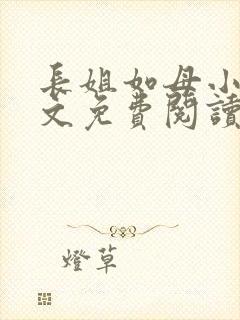 長姐如母小
文免費閱讀
燈草